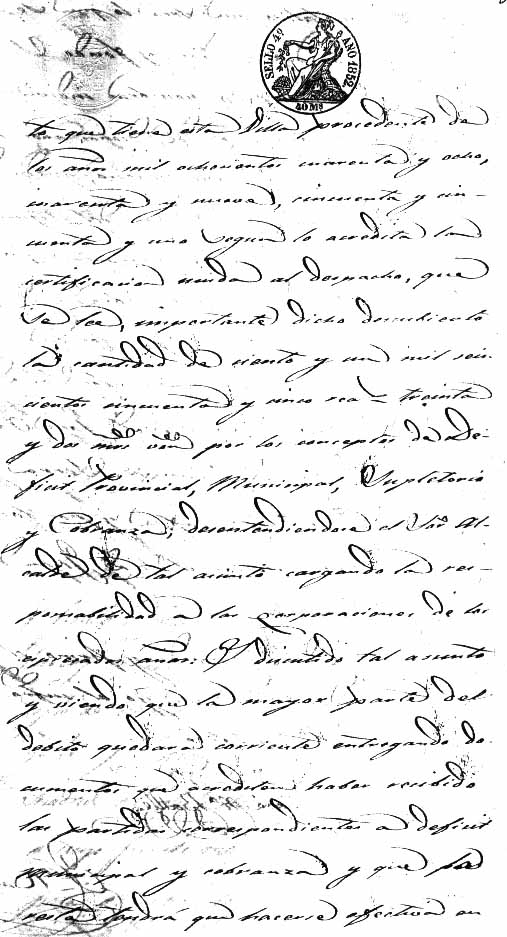 SELLO 4º AÑO 1852
40 MS
to que tiene esta Villa procedente de
los años mil ochocientos cuarenta y ocho,
cuarenta y nueve, cincuenta y cin-
cuenta y uno segun lo acredita la
certificacion unida al despacho, que
se lee, importante dicho descubierto
la cantidad de ciento y un mil seis
cientos cincuenta y cinco rea- treinta
y dos mrs von por los conceptos de De-
ficit Provincial, Municipal, Supletorio
y Cobranza; desentendiendose el Sor Al-
calde de tal asunto cargando la res-
ponsabilidad a las corporaciones de los
espresados años: Y discutido tal asunto
y viendo que la mayor parte del
debito quedará corriente entregando do-
cumentos que acrediten haber recibido
las partidas correspondientes a deficit
Municipal y cobranza y que
resta tendrá que hacerse efectiva en